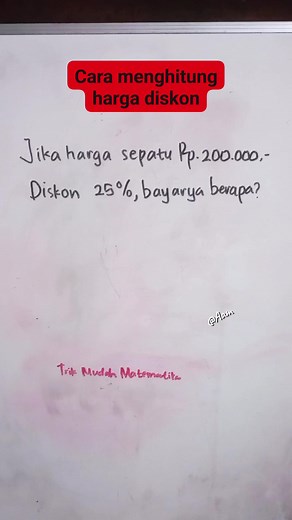 Cara menghitung
harga diskon
Jika harga sepatu Rp.200.000,-
Diskon 25%, bayarya berapa?
Trik Mudah Matematika